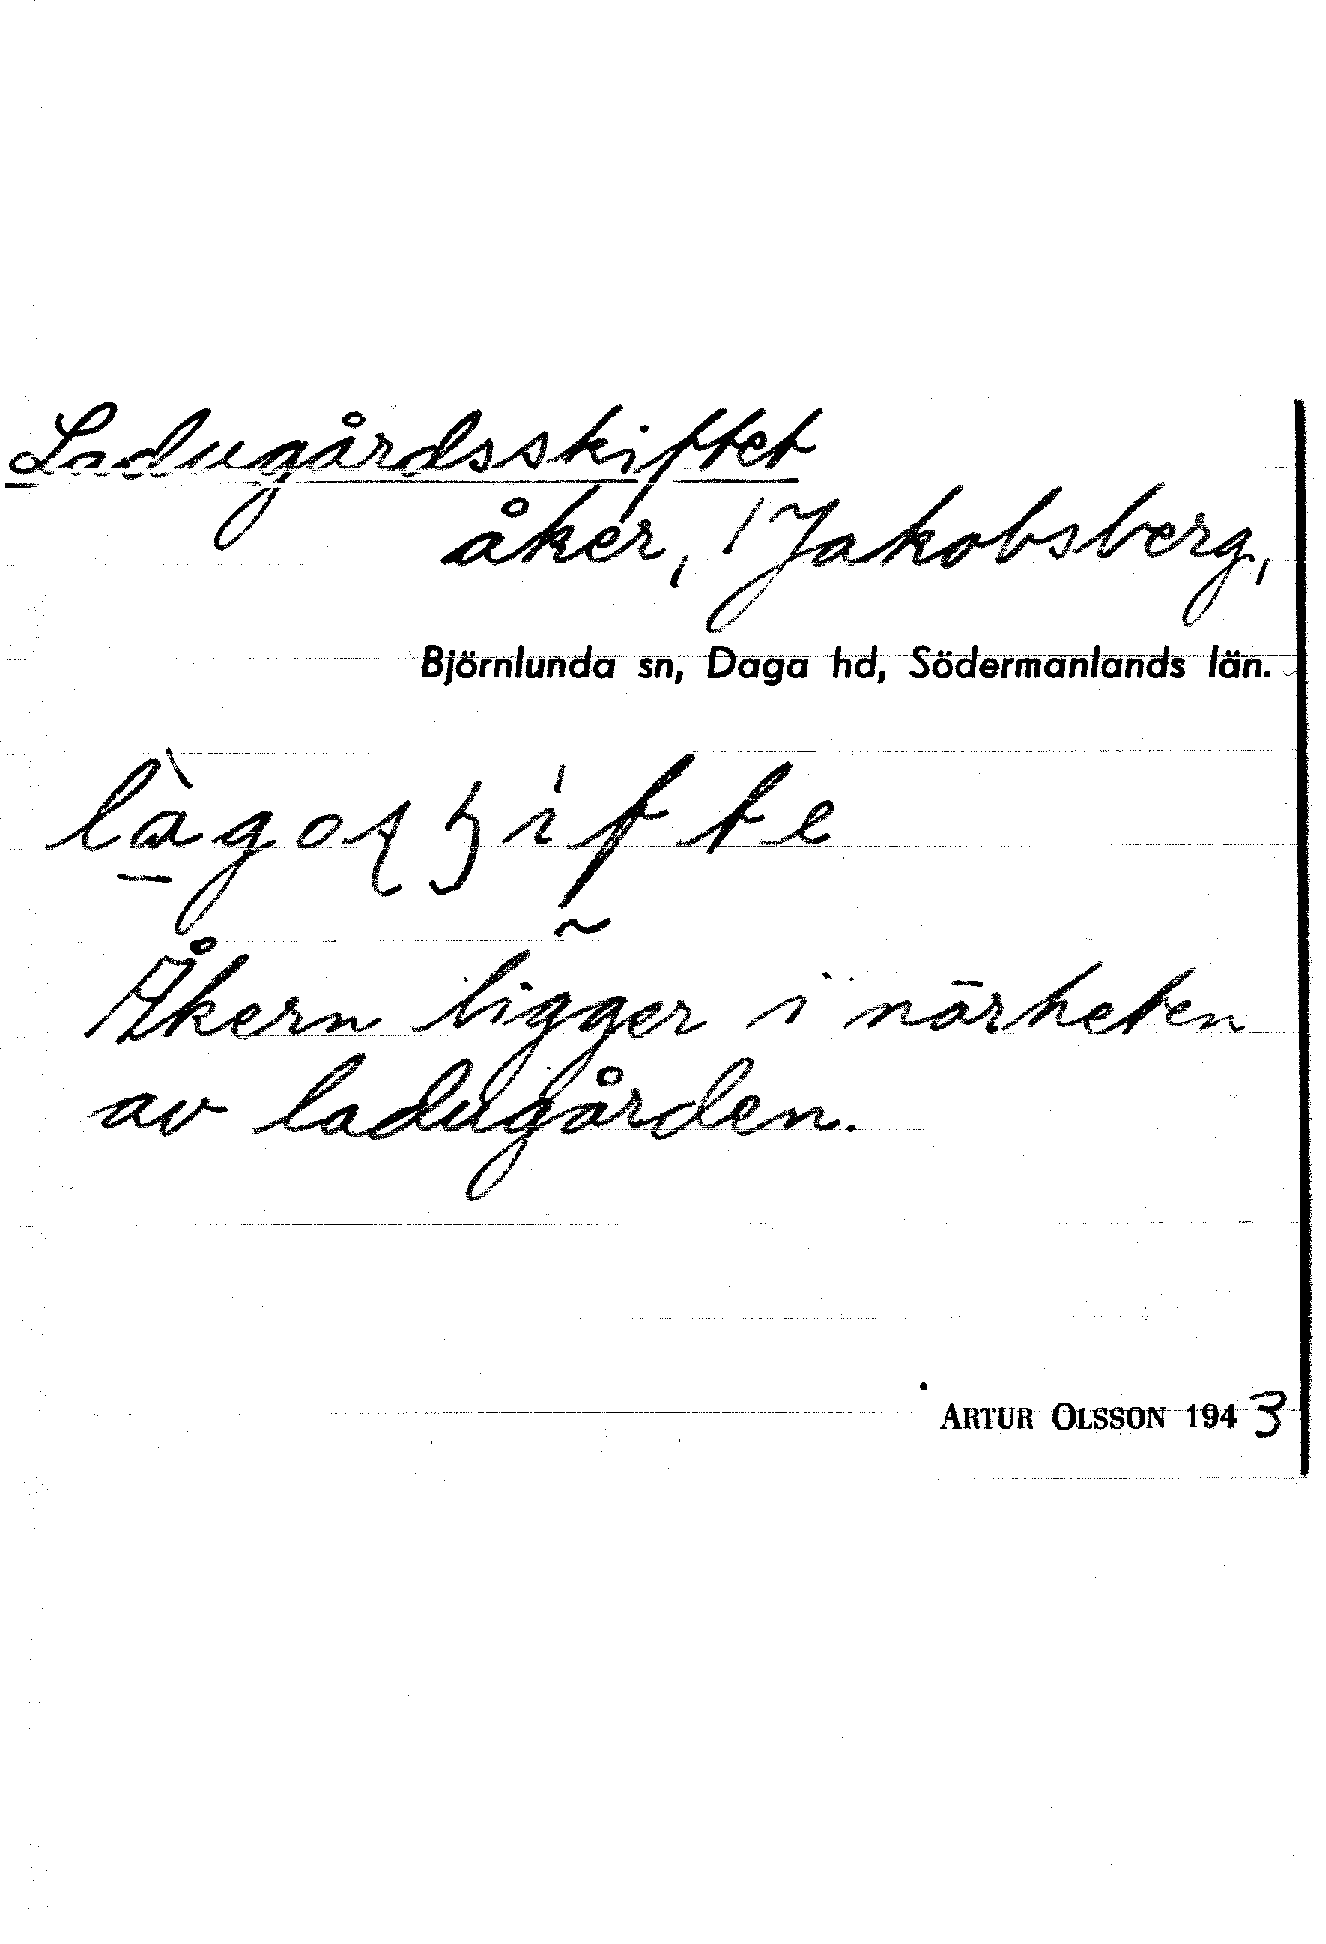 Ladugårdsskiftet
åker, 1 Jakobsberg,
Björnlunda sn, Daga hd, Södermanlands län.
Åkern ligger i närheten
av ladugården.
ARTUR OLSSON 1943